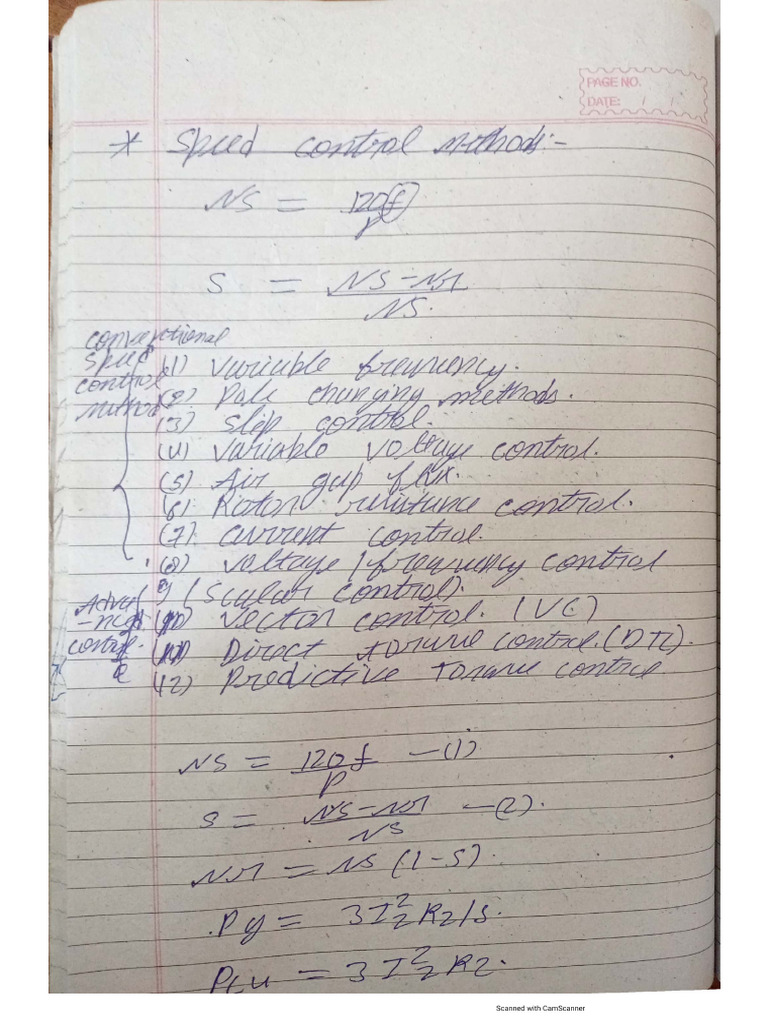 PAGE NO.
DATE: / /
* Speed control methods:-
NS = 120f/P
S = NS-Nr/NS.
conventional speed control method
(1) Variable frequency.
(2) Pole changing methods.
(3) Slip control.
(4) Variable voltage control.
(5) Air gap flux.
(6) Rotor resistance control.
(7) current control.
(8) voltage/frequency control
9) (Scalar control).
Adva-nced control
(10) Vector control. (VC)
(11) Direct torque control. (DTC).
(12) Predictive Torque control
NS = 120f/P —(1)
S = NS-Nr/NS —(2).
Nr = NS (1-S).
Pg = 3I₂²R2/S.
Pcu = 3I₂²R2.
Scanned with CamScanner